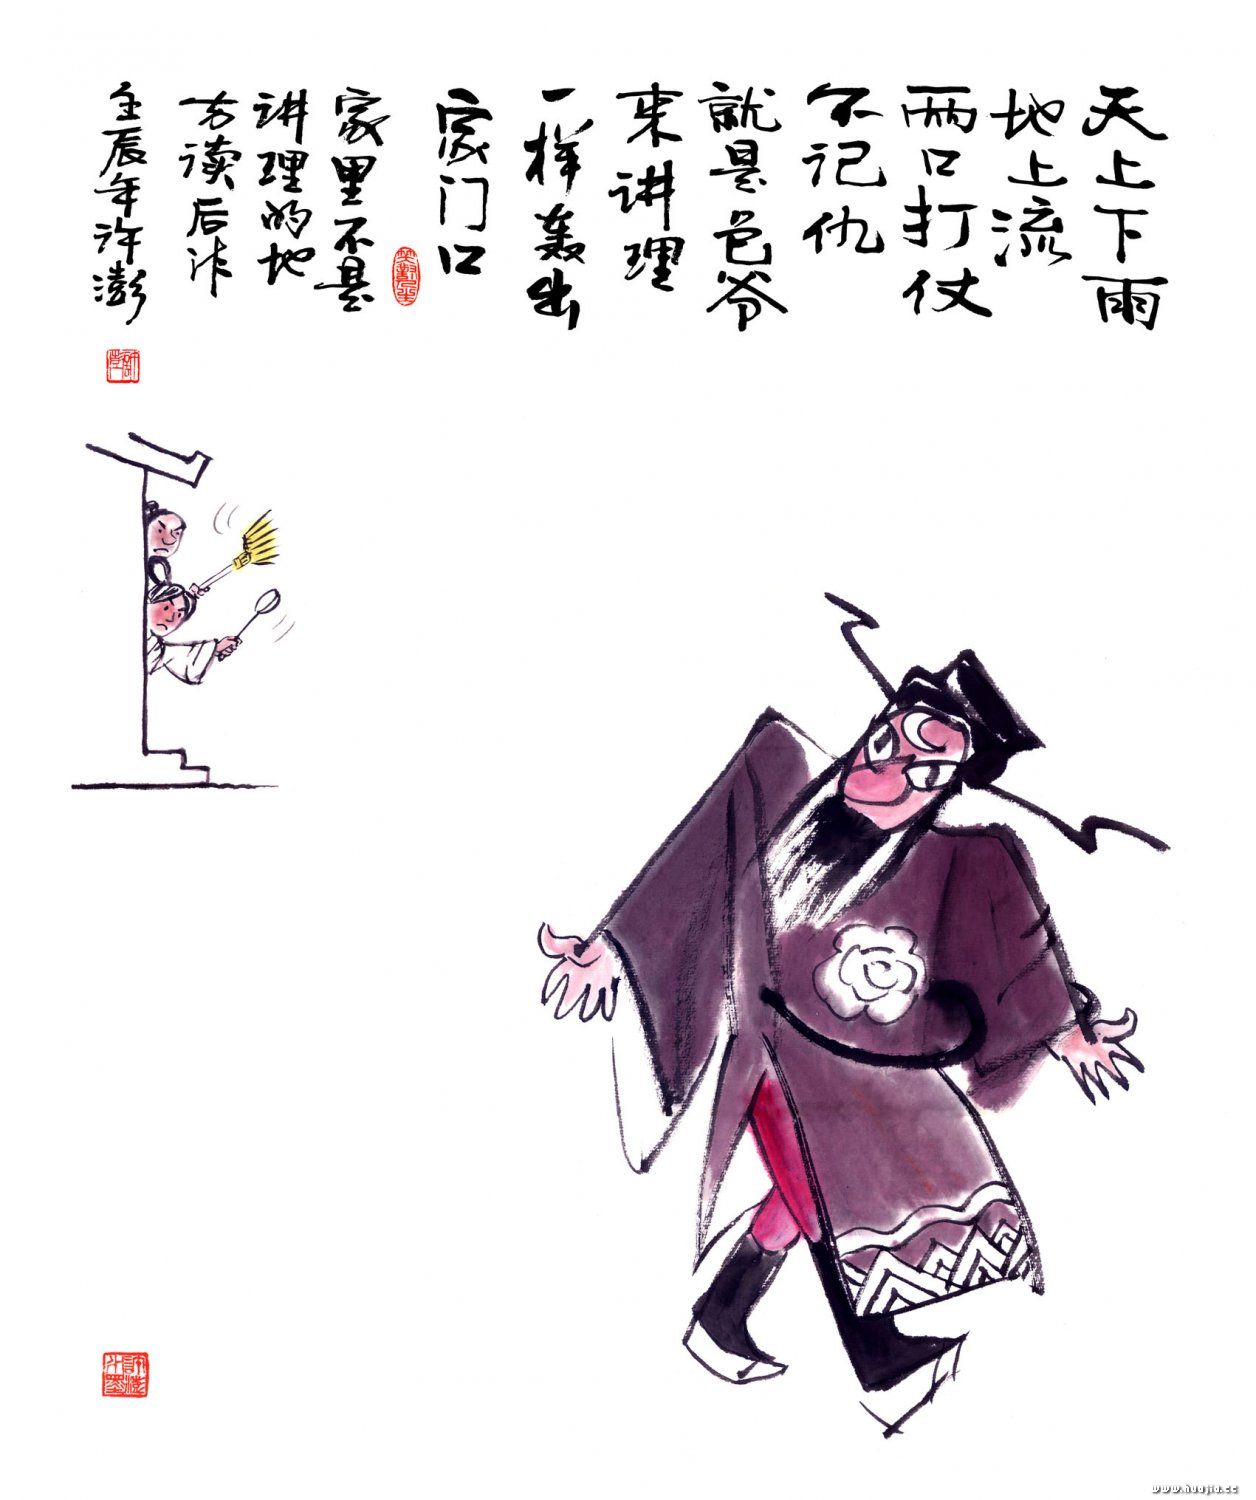 天上下雨
地上流
两口打仗
不记仇
就是包爷
来讲理
一样轰出
家门口
家里不是
讲理的地
方读后注
壬辰年许澎
www.huajia.cc